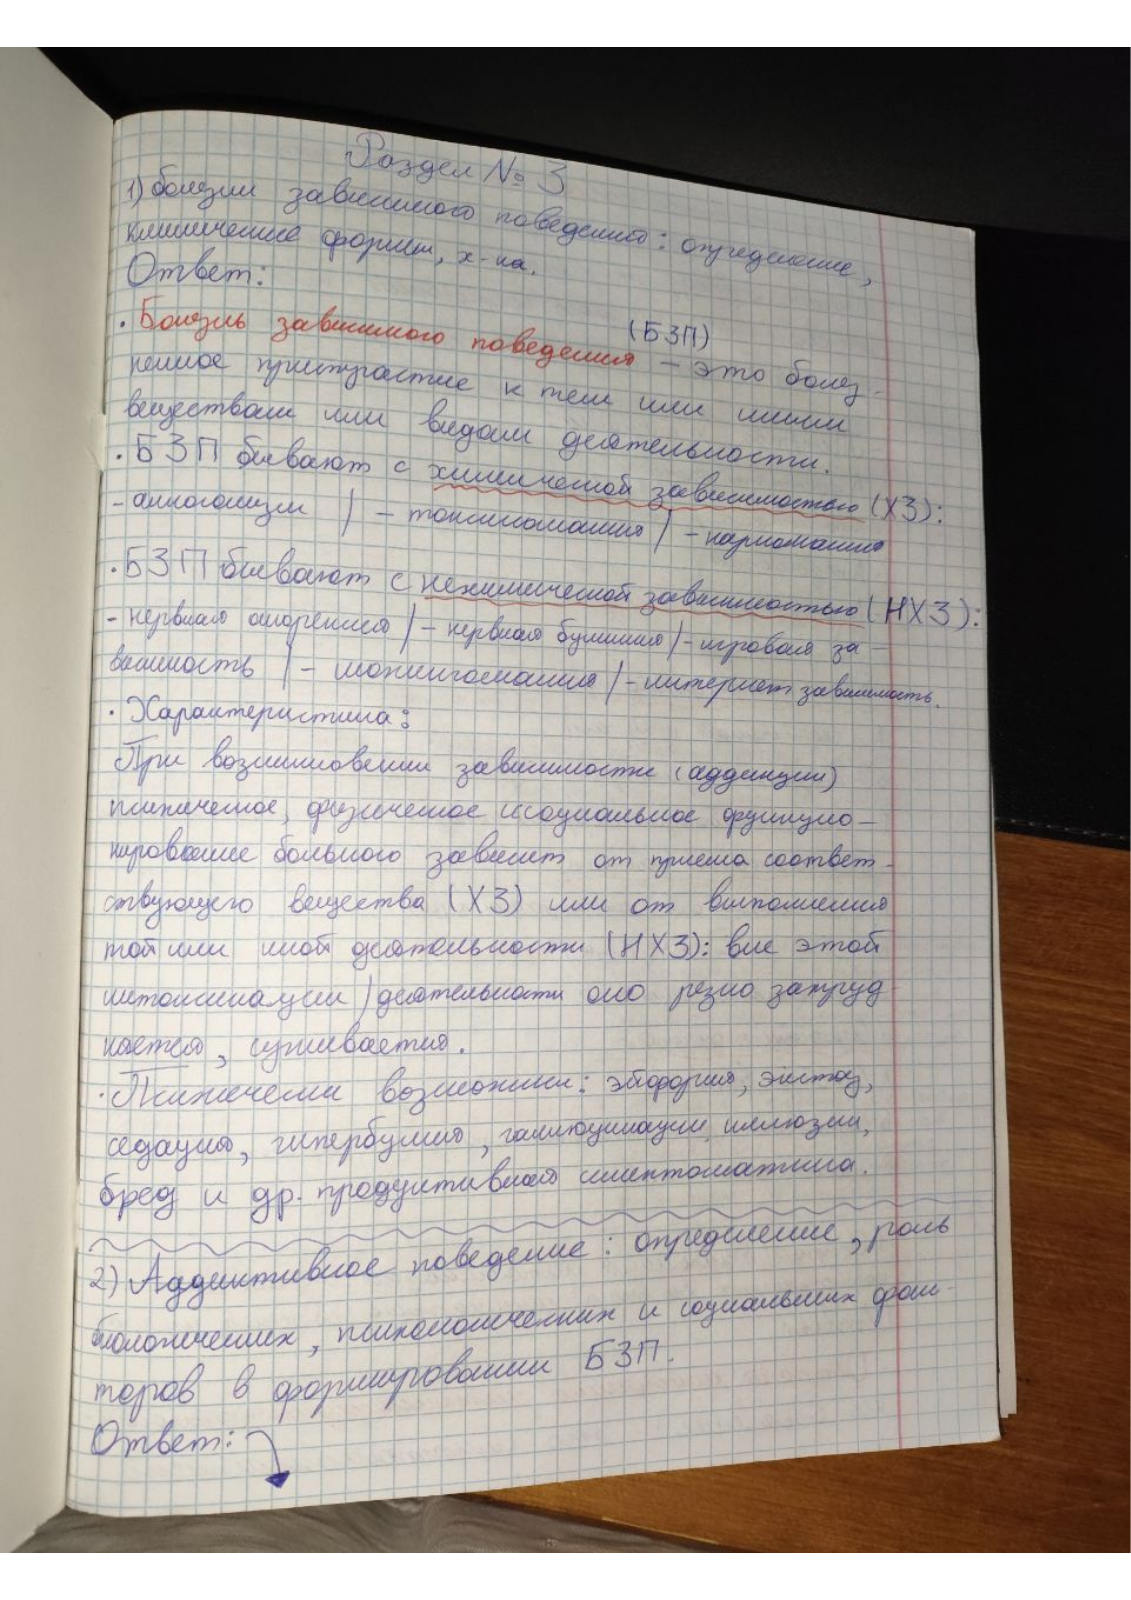 Раздел № 3
1) болезни зависимого поведения: определение,
клинические формы, х-ка.
Ответ:
(БЗП)
· Болезнь зависимого поведения – это болез-
ненное пристрастие к тем или иным
веществам или видам деятельности.
· БЗП бывают с химической зависимостью (ХЗ):
- алкоголизм / - токсикомания / - наркомания
· БЗП бывают с нехимической зависимостью (НХЗ):
- нервная анорексия / - нервная булимия / - игровая за-
висимость / - шопингомания / - интернет зависимость.
· Характеристика:
При возникновении зависимости (аддикции)
психическое, физическое и социальное функцио-
нирование больного зависит от приема соответ-
ствующего вещества (ХЗ) или от выполнения
той или иной деятельности (НХЗ): вне этой
интоксикации / деятельности оно резко затруд
няется, суживается.
· Психически возможны: эйфория, экстаз,
седация, гипербулия, галлюцинации, иллюзии,
бред и др. продуктивная симптоматика.
2) Аддиктивное поведение: определение, роль
биологических, психологических и социальных фак-
торов в формировании БЗП.
Ответ: